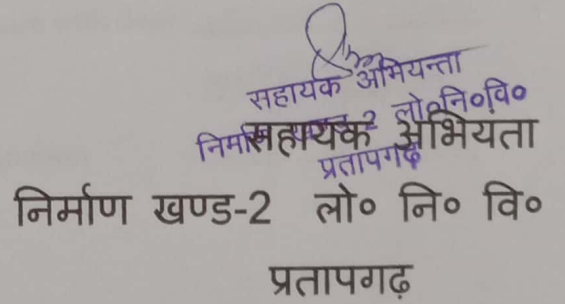 सहायक अभियन्ता
निर्माण खण्ड-2 लो०नि०वि०
प्रतापगढ़
सहायक अभियता
निर्माण खण्ड-2 लो० नि० वि०
प्रतापगढ़